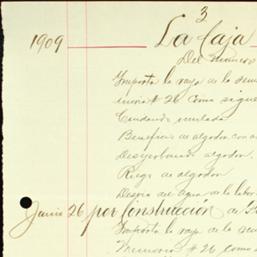 3
1909 La Caja
Del número
Importa la raya de la sem
#26 como sigue
Cuidando
Beneficio de algodon con
Desyerbando algodon.
Riego de algodon
Desvio del agua de la labor
Junio 26 por Construcción de
Importa la raya de la se
Memoria #26 como